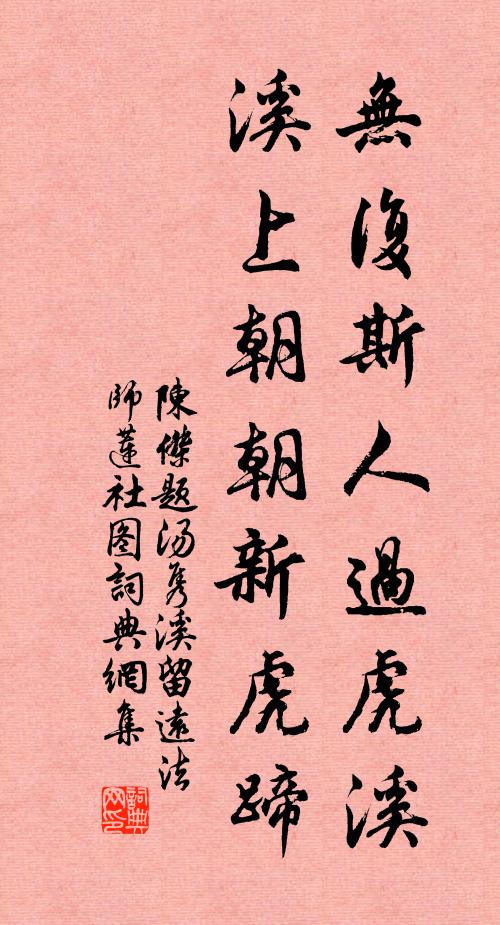 無復斯人過虎溪
溪上朝朝新虎蹄
陳傑題湯秀溪留遠法
師蓮社图詞典網集
詞典
网印